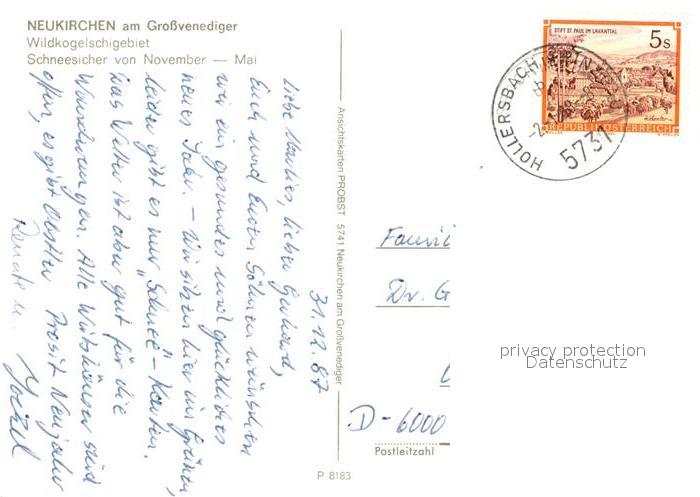 NEUKIRCHEN am Großvenediger
Wildkogelschigebiet
Schneesicher von November — Mai
31.12.87
Liebe Marlies, lieber Gerhard,
Euch und Euren Söhnen wünschen
wir ein gesundes und glückliches
neues Jahr. – Wir sitzen hier im Grünen,
leider gibt es nur "Schnee"-Karten.
Das Wetter ist aber gut für die
Wanderungen. Alle Wirtshäuser sind
offen, es gibt Obstler. Prosit Neujahr
Renate u.
Ansichtskarten PROBST 5741 Neukirchen am Großvenediger
P 8183
STIFT ST. PAUL IM LAVANTTAL
5 S
REPUBLIK ÖSTERREICH
HOLLERSBACH
5731
Famili
Dr. G
D-6000
Postleitzahl
privacy protection
Datenschutz